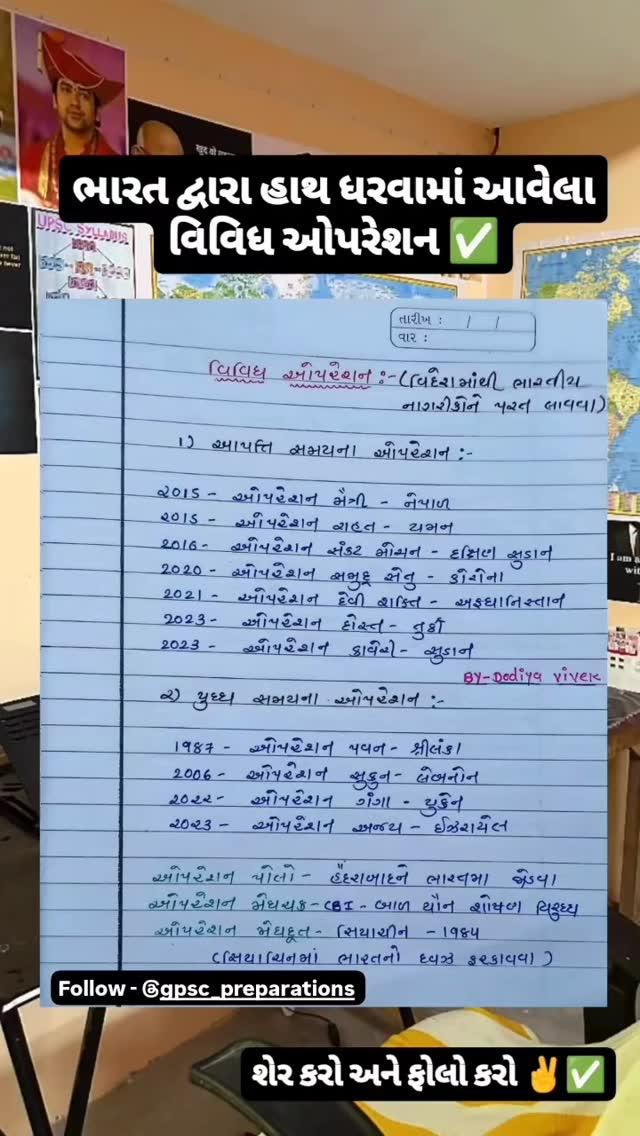 ભારત દ્વારા હાથ ધરવામાં આવેલા
વિવિધ ઓપરેશન ✅
UPSC SYLLABUS
તારીખ : / /
વાર :
વિવિધ ઓપરેશન :- (વિદેશમાંથી ભારતીય
નાગરીકોને પરત લાવવા)
૧) આપત્તિ સમયના ઓપરેશન :-
૨૦15 - ઓપરેશન મૈત્રી - નેપાળ
૨૦15 - ઓપરેશન રાહત - યમન
૨૦16 - ઓપરેશન સંકટ મોચન - દક્ષિણ સુડાન
૨૦૨૦ - ઓપરેશન સમુદ્ર સેતુ - કોરોના
૨૦૨1 - ઓપરેશન દેવી શક્તિ - અફઘાનિસ્તાન
૨૦૨3 - ઓપરેશન દોસ્ત - તુર્કી
૨૦૨3 - ઓપરેશન કાવેરી - સુડાન
BY-Dodiya vivek
૨) યુધ્ધ સમયના ઓપરેશન :-
1987 - ઓપરેશન પવન - શ્રીલંકા
૨૦૦6 - ઓપરેશન સુકુન - લેબનોન
૨૦૨૨ - ઓપરેશન ગંગા - યુક્રેન
૨૦૨3 - ઓપરેશન અજય - ઈઝરાયેલ
ઓપરેશન પોલો - હૈદરાબાદને ભારતમા જોડવા
ઓપરેશન મેઘચક્ર - CBI - બાળ યૌન શોષણ વિરુધ્ધ
ઓપરેશન મેઘદૂત - સિયાચીન - ૧૯૮૫
(સિયાચિનમાં ભારતનો ધ્વજ ફરકાવવા)
Follow - @gpsc_preparations
શેર કરો અને ફોલો કરો ✌️✅